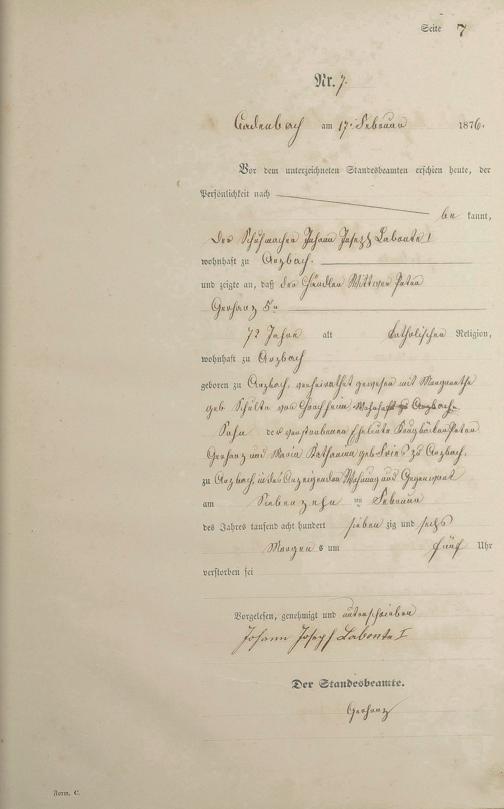 Seite 7
Nr. 7.
Cadenbach am 17. Februar 1876.
Vor dem unterzeichneten Standesbeamten erschien heute, der
Persönlichkeit nach
be kannt,
der Schuhmacher Johann Joseph Labonte I
wohnhaft zu Arzbach.
und zeigte an, daß der Händler Wittwer Peter
Gerharz
72 Jahre alt katholischer Religion,
wohnhaft zu Arzbach
geboren zu Arzbach, verheirathet gewesen mit Margarethe
geb. von wohnhaft zu Arzbach
Sohn der verstorbenen Eheleute Peter
Gerharz und Maria Katharina geb. Fries zu Arzbach.
zu Arzbach, in des Anzeigenden Wohnung und Gegenwart
am Siebenzehn Februar
des Jahres tausend acht hundert sieben zig und sechs
Morgen s um fünf Uhr
verstorben sei
Vorgelesen, genehmigt und unterschrieben
Johann Joseph Labonte I
Der Standesbeamte.
Gerharz
Form. C.